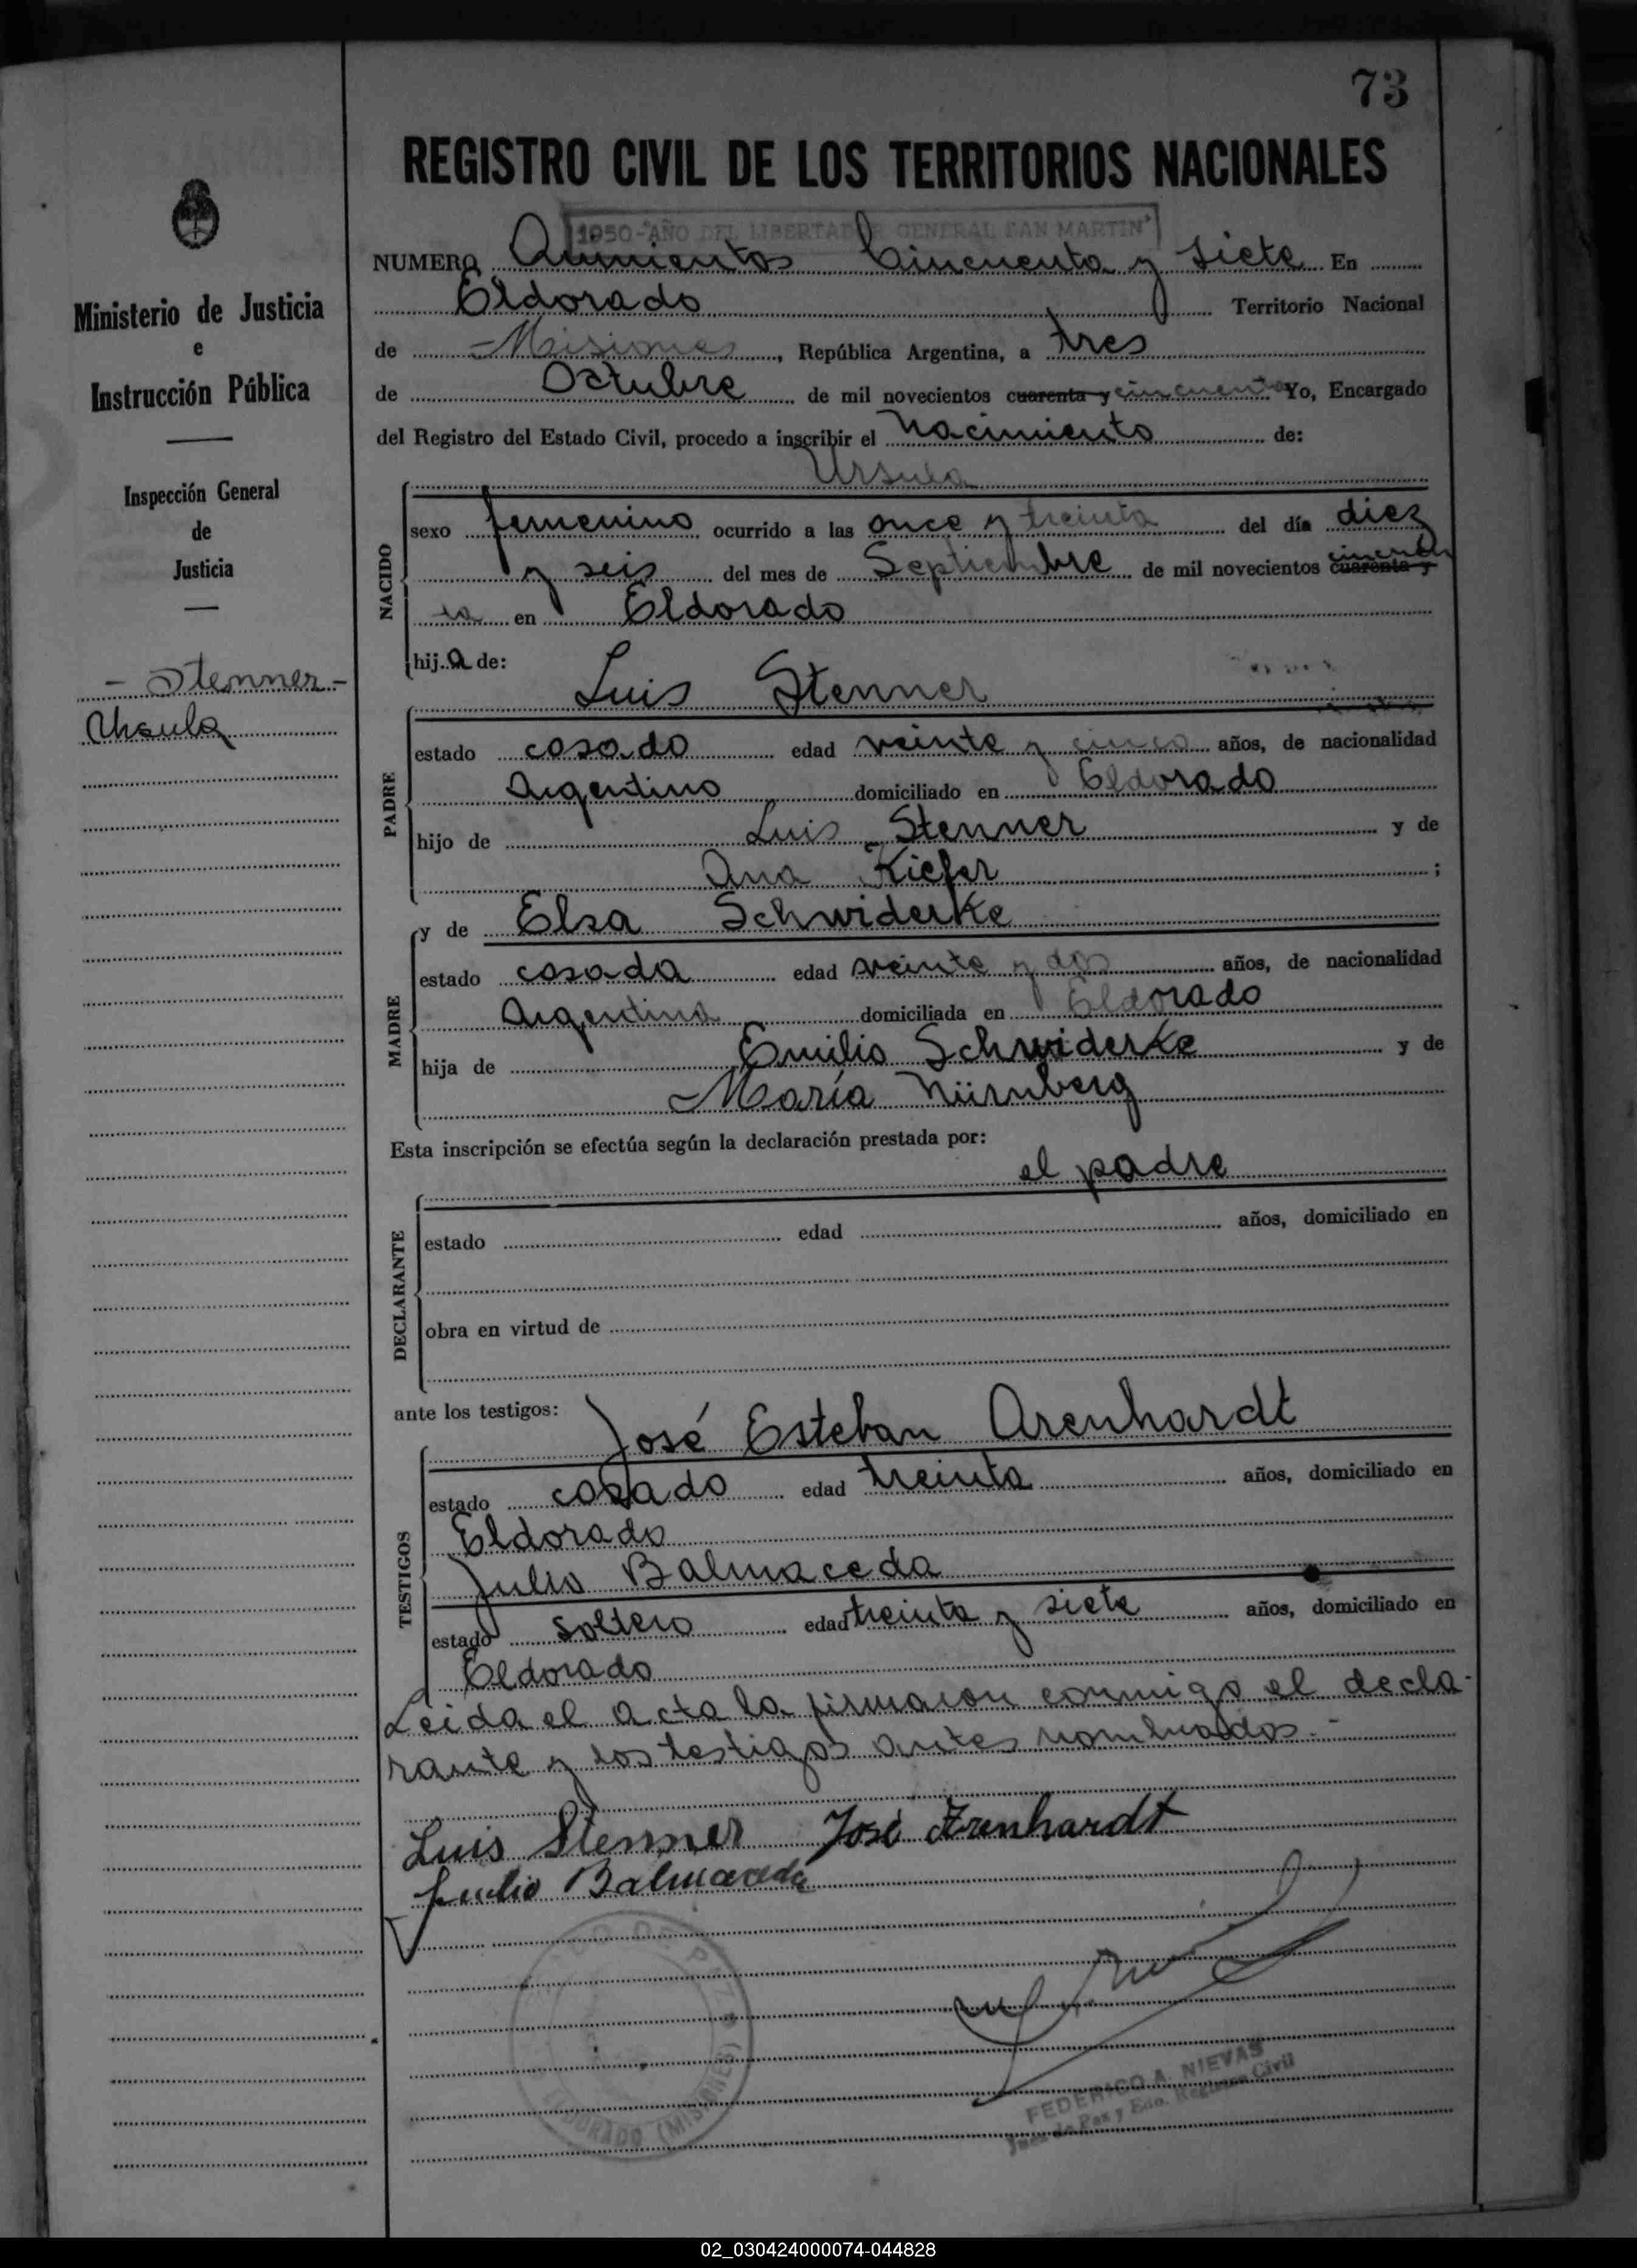 73
REGISTRO CIVIL DE LOS TERRITORIOS NACIONALES
1950-"AÑO DEL LIBERTADOR GENERAL SAN MARTIN"
NUMERO Quinientos Cincuenta y siete En
Eldorado Territorio Nacional
de Misiones, República Argentina, a tres
de Octubre de mil novecientos cuarenta y cincuenta Yo, Encargado
del Registro del Estado Civil, procedo a inscribir el Nacimiento de:
Ursula
NACIDO
sexo femenino ocurrido a las once y treinta del día diez
y seis del mes de Septiembre de mil novecientos cuarenta y cincuen
ta en Eldorado
hija de:
Luis Stenner
PADRE
estado casado edad veinte y cinco años, de nacionalidad
Argentino domiciliado en Eldorado
hijo de Luis Stenner y de
Ana Kiefer ;
y de Elsa Schwiderke
MADRE
estado casada edad veinte y dos años, de nacionalidad
Argentina domiciliada en Eldorado
hija de Emilio Schwiderke y de
María Nürnberg
Esta inscripción se efectúa según la declaración prestada por:
el padre
DECLARANTE
estado edad años, domiciliado en
obra en virtud de
ante los testigos:
José Esteban Arenhardt
TESTIGOS
estado casado edad treinta años, domiciliado en
Eldorado
Julio Balmaceda
estado soltero edad treinta y siete años, domiciliado en
Eldorado
Leida el acta la firmaron conmigo el decla-
rante y los testigos antes nombrados.-
Luis Stenner José Arenhardt
Julio Balmaceda
DE PAZ
ELDORADO (MISIONES)
FEDERICO A. NIEVAS
Juez de Paz y Edo. Registro Civil
Ministerio de Justicia
e
Instrucción Pública
Inspección General
de
Justicia
- Stenner -
Ursula
02_030424000074-044828